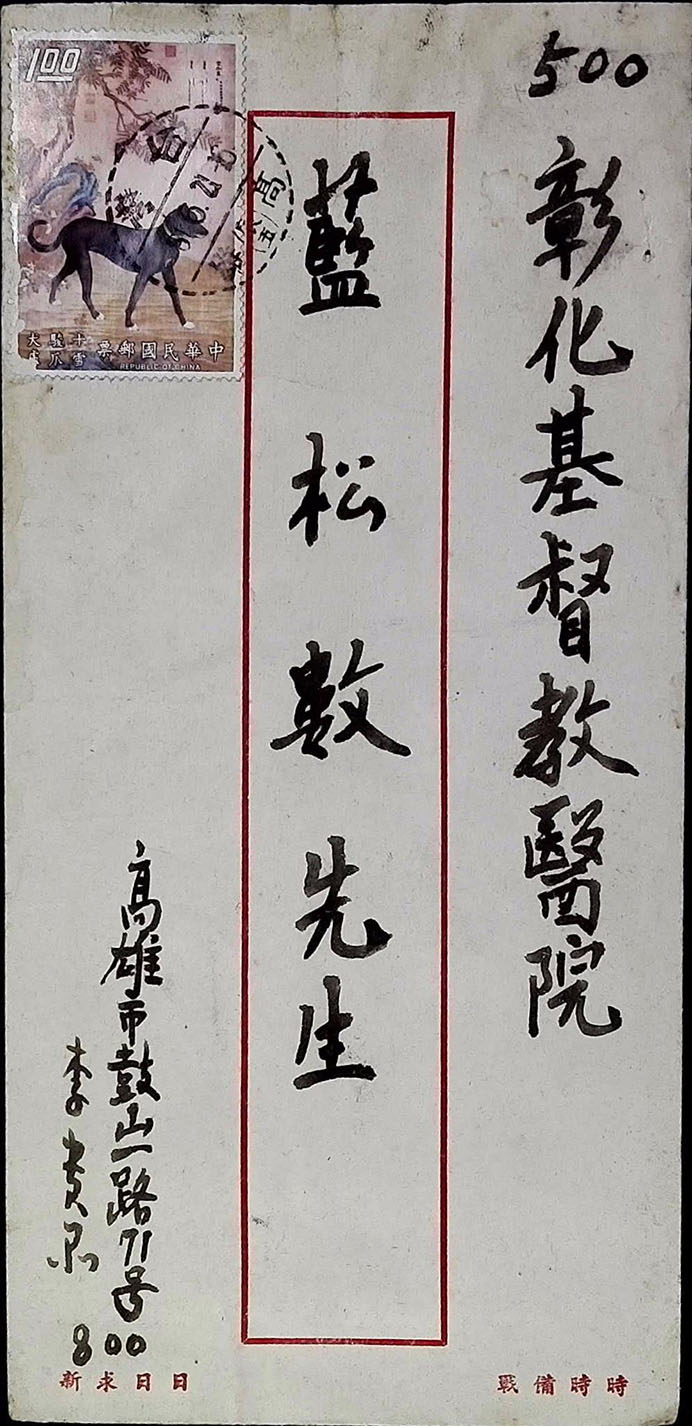 500
彰化基督教醫院
藍松數先生
高雄市鼓山一路71号
李貴
800
時時備戰
日日求新
1.00
十駿犬
雪爪盧
中華民國郵票
REPUBLIC OF CHINA